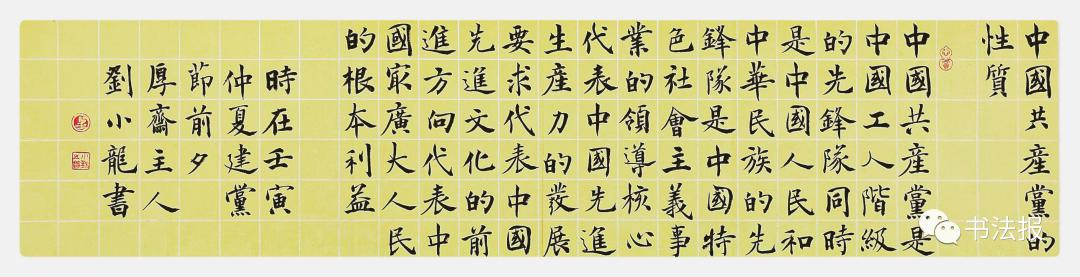 中國共產黨的
性質
中國共產黨是
中國工人階級
的先鋒隊同時
是中國人民和
中華民族的先
鋒隊是中國特
色社會主義事
業的領導核心
代表中國先進
生產力的發展
要求代表中國
先進文化的前
進方向代表中
國最廣大人民
的根本利益
時在壬寅
仲夏建黨
節前夕
厚齋主人
劉小龍書
书法报